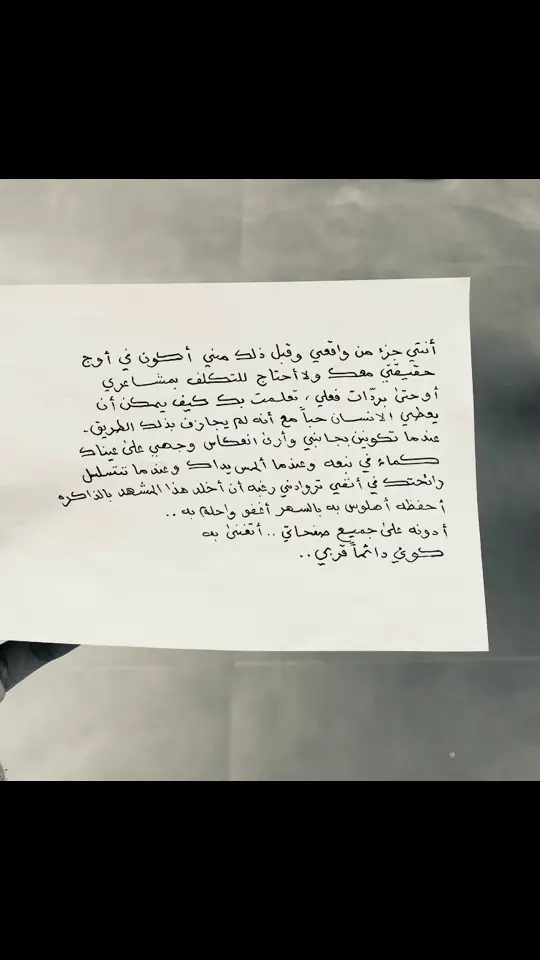 أنتي جزء من واقعي وقبل ذلك مني أكون في أوج
حقيقتي معك ولا أحتاج للتكلف بمشاعري
أو حتى بردّات فعلي ، تعلمت بك كيف يمكن أن
يعطي الانسان حباً مع أنه لم يجازف بذلك الطريق.
عندما تكونين بجانبي وأرى انعكاس وجهي على عيناك
كماء في نبعه وعندما ألمس يداك وعندما تتسلسل
رائحتك في أنفي تروادني رغبه أن أخلد هذا المشهد بالذاكره
أحفظه أهلوس به بالسهر أغفو واحلم به ..
أدونه على جميع صفحاتي .. أتغنىٰ به
كوني دائماً قربي ..